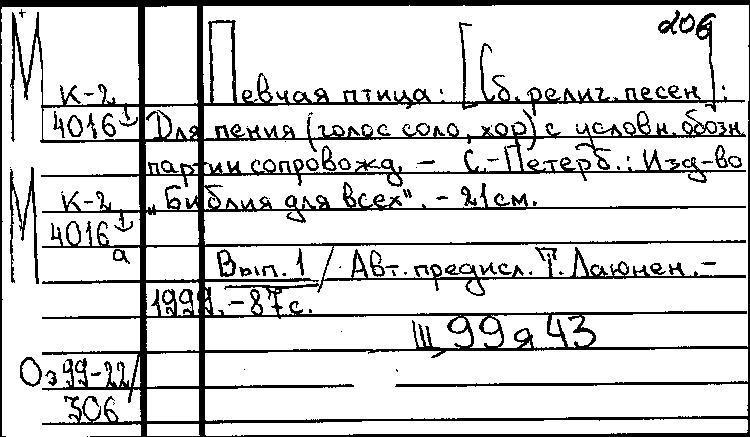 206
М
Певчая птица: [Сб. религ. песен]:
К-2
4016 Для пения (голос соло, хор) с условн. обозн.
партии сопровожд. — С.-Петерб.: Изд-во
М К-2 „Библия для всех". - 21 см.
4016
а
Вып. 1 / Авт. предисл. Т. Лаюнен. -
1999. - 87 с.
Щ 99 я 43
Оз 99-22/
306